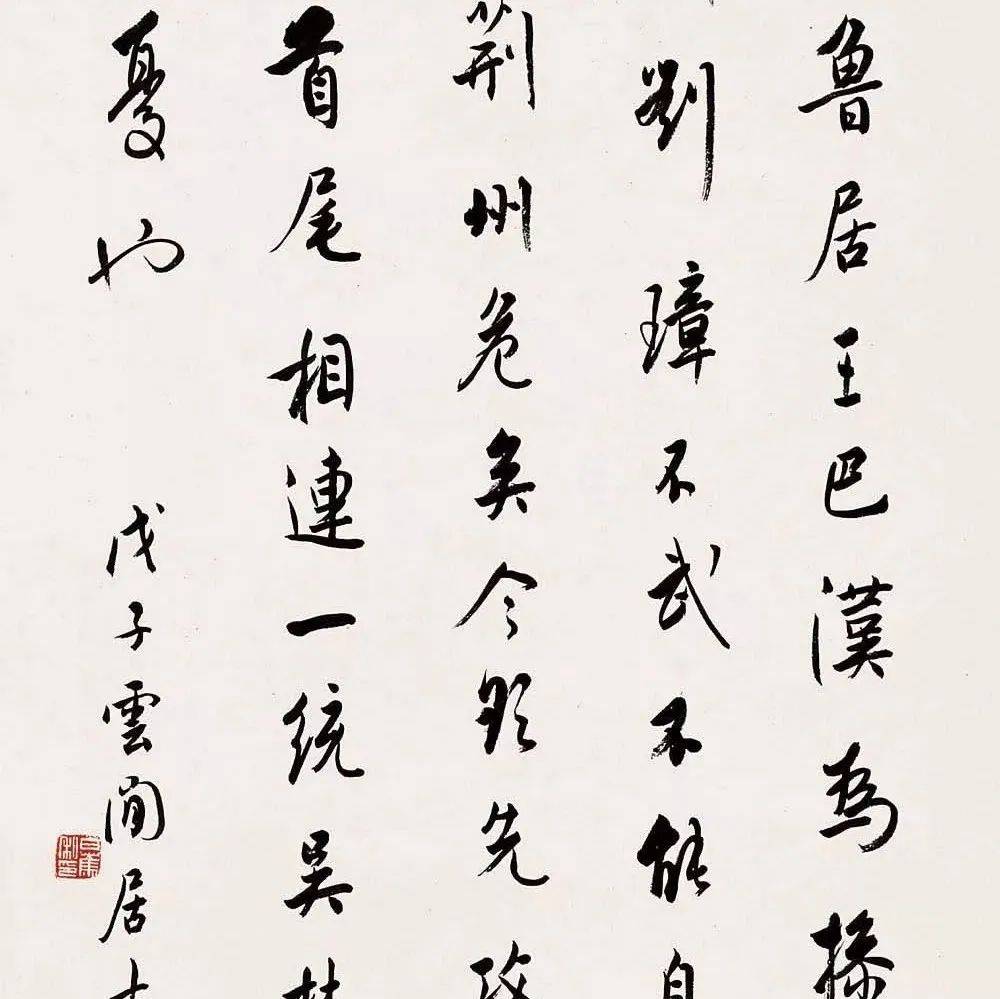 魯居王巴漢為操
劉璋不武不能自
荆州危矣今欲先攻
首尾相連一統吳楚
憂也
戊子雲間居士